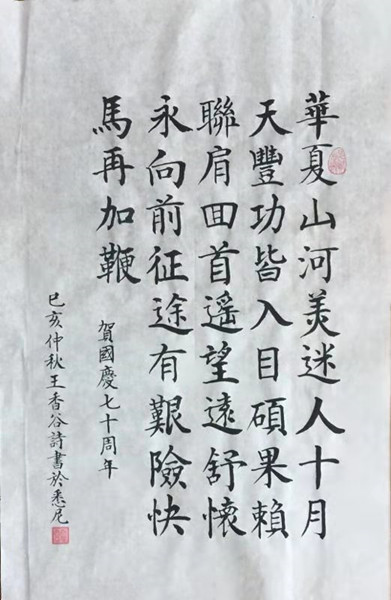 華夏山河美迷人十月
天豐功皆入目碩果賴
聯肩回首遥望遠舒懷
永向前征途有艱險快
馬再加鞭
賀國慶七十周年
已亥仲秋王香谷詩書於悉尼